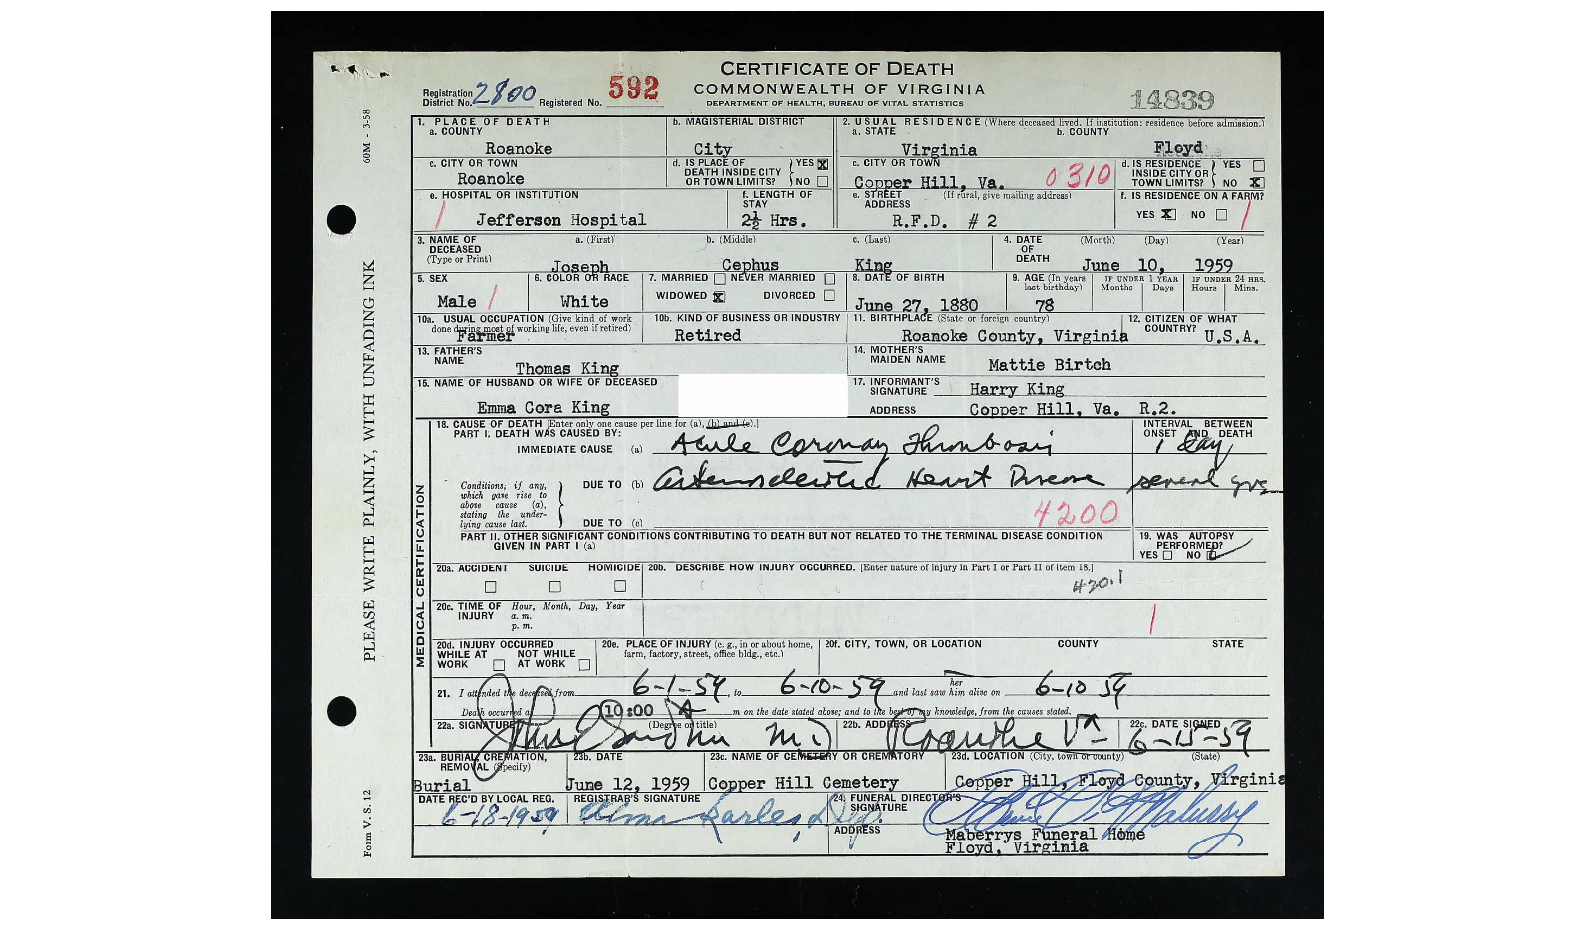 CERTIFICATE OF DEATH
COMMONWEALTH OF VIRGINIA
DEPARTMENT OF HEALTH, BUREAU OF VITAL STATISTICS
Registration District No. 2800 Registered No. 592
14839
60M - 3-58
PLEASE WRITE PLAINLY, WITH UNFADING INK
Form V. S. 12
1. PLACE OF DEATH
a. COUNTY
Roanoke
b. MAGISTERIAL DISTRICT
City
2. USUAL RESIDENCE (Where deceased lived. If institution: residence before admission.)
a. STATE
Virginia
b. COUNTY
Floyd
c. CITY OR TOWN
Roanoke
d. IS PLACE OF DEATH INSIDE CITY OR TOWN LIMITS? YES X NO
c. CITY OR TOWN
Copper Hill, Va.
0310
d. IS RESIDENCE INSIDE CITY OR TOWN LIMITS? YES NO X
e. HOSPITAL OR INSTITUTION
Jefferson Hospital
f. LENGTH OF STAY
2½ Hrs.
e. STREET ADDRESS (If rural, give mailing address)
R.F.D. # 2
f. IS RESIDENCE ON A FARM?
YES X NO
3. NAME OF DECEASED (Type or Print)
a. (First) b. (Middle) c. (Last)
Joseph Cephus King
4. DATE OF DEATH (Month) (Day) (Year)
June 10, 1959
5. SEX
Male
6. COLOR OR RACE
White
7. MARRIED NEVER MARRIED
WIDOWED X DIVORCED
8. DATE OF BIRTH
June 27, 1880
9. AGE (In years last birthday)
78
IF UNDER 1 YEAR
Months Days
IF UNDER 24 HRS.
Hours Mins.
10a. USUAL OCCUPATION (Give kind of work done during most of working life, even if retired)
Farmer
10b. KIND OF BUSINESS OR INDUSTRY
Retired
11. BIRTHPLACE (State or foreign country)
Roanoke County, Virginia
12. CITIZEN OF WHAT COUNTRY?
U.S.A.
13. FATHER'S NAME
Thomas King
14. MOTHER'S MAIDEN NAME
Mattie Birtch
15. NAME OF HUSBAND OR WIFE OF DECEASED
Emma Cora King
17. INFORMANT'S SIGNATURE Harry King
ADDRESS Copper Hill, Va. R.2.
MEDICAL CERTIFICATION
18. CAUSE OF DEATH [Enter only one cause per line for (a), (b) and (c).]
PART I. DEATH WAS CAUSED BY:
IMMEDIATE CAUSE (a) Acute Coronary Thrombosis
INTERVAL BETWEEN ONSET AND DEATH
1 day
Conditions, if any, which gave rise to above cause (a), stating the underlying cause last.
DUE TO (b) Arteriosclerotic Heart Disease several yrs
DUE TO (c)
4200
PART II. OTHER SIGNIFICANT CONDITIONS CONTRIBUTING TO DEATH BUT NOT RELATED TO THE TERMINAL DISEASE CONDITION GIVEN IN PART I (a)
19. WAS AUTOPSY PERFORMED?
YES NO
20a. ACCIDENT SUICIDE HOMICIDE
20b. DESCRIBE HOW INJURY OCCURRED. [Enter nature of injury in Part I or Part II of item 18.]
420.1
20c. TIME OF INJURY Hour, Month, Day, Year
a. m.
p. m.
20d. INJURY OCCURRED
WHILE AT WORK NOT WHILE AT WORK
20e. PLACE OF INJURY (e. g., in or about home, farm, factory, street, office bldg., etc.)
20f. CITY, TOWN, OR LOCATION COUNTY STATE
21. I attended the deceased from 6-1-59, to 6-10-59 and last saw her him alive on 6-10 59
Death occurred at 10:00 A m on the date stated above; and to the best of my knowledge, from the causes stated.
22a. SIGNATURE (Degree or title)
M.D
22b. ADDRESS
Roanoke Va
22c. DATE SIGNED
6-15-59
23a. BURIAL, CREMATION, REMOVAL (Specify)
Burial
23b. DATE
June 12, 1959
23c. NAME OF CEMETERY OR CREMATORY
Copper Hill Cemetery
23d. LOCATION (City, town or county) (State)
Copper Hill, Floyd County, Virginia
DATE REC'D BY LOCAL REG.
6-18-1959
REGISTRAR'S SIGNATURE
Alma
24. FUNERAL DIRECTOR'S SIGNATURE
ADDRESS
Maberrys Funeral Home
Floyd, Virginia